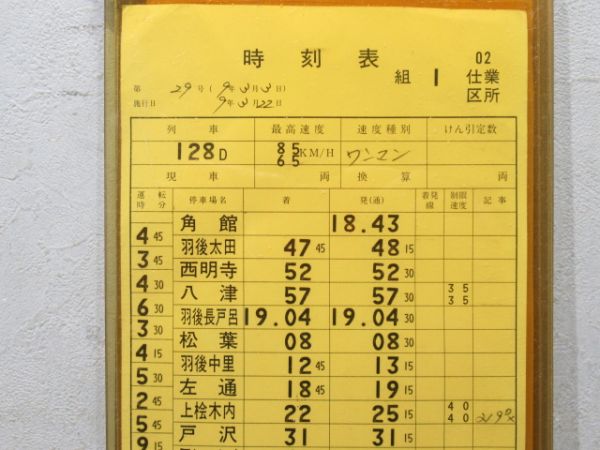 時刻表
02
組 1 仕業
区所
第 29号 (9年3月3日)
施行日 9年3月22日
列車 最高速度 速度種別 けん引定数
128D 85 KM/H ワンマン
65
現車 両 換算 両
運転時分 停車場名 着 発(通) 着発線 制限速度 記事
角館 18.43
4 45
羽後太田 47 45 48 15
3 45
西明寺 52 52 30
4 30
八津 57 57 30 35 35
6 30
羽後長戸呂 19.04 19.04 30
3 30
松葉 08 08 30
4 15
羽後中里 12 45 13 15
5 30
左通 18 45 19 15
2 45
上桧木内 22 25 15 40 40
5 45
戸沢 31 31 15
9 15